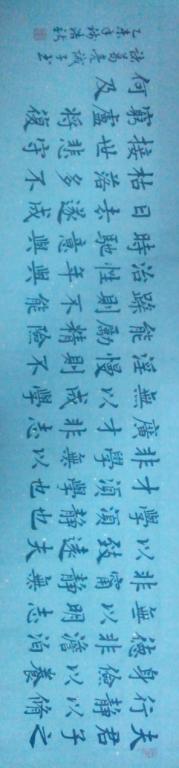 夫君子之
行靜以脩
身儉以養
德非澹泊
無以明志
非甯靜無
以致遠夫
學須靜也
才須學也
非學無以
廣才非志
無以成學
淫慢則不
能勵精險
躁則不能
治性年與
時馳意與
日去遂成
枯落多不
接世悲守
窮盧將復
何及
諸葛亮誡子書
乙未年